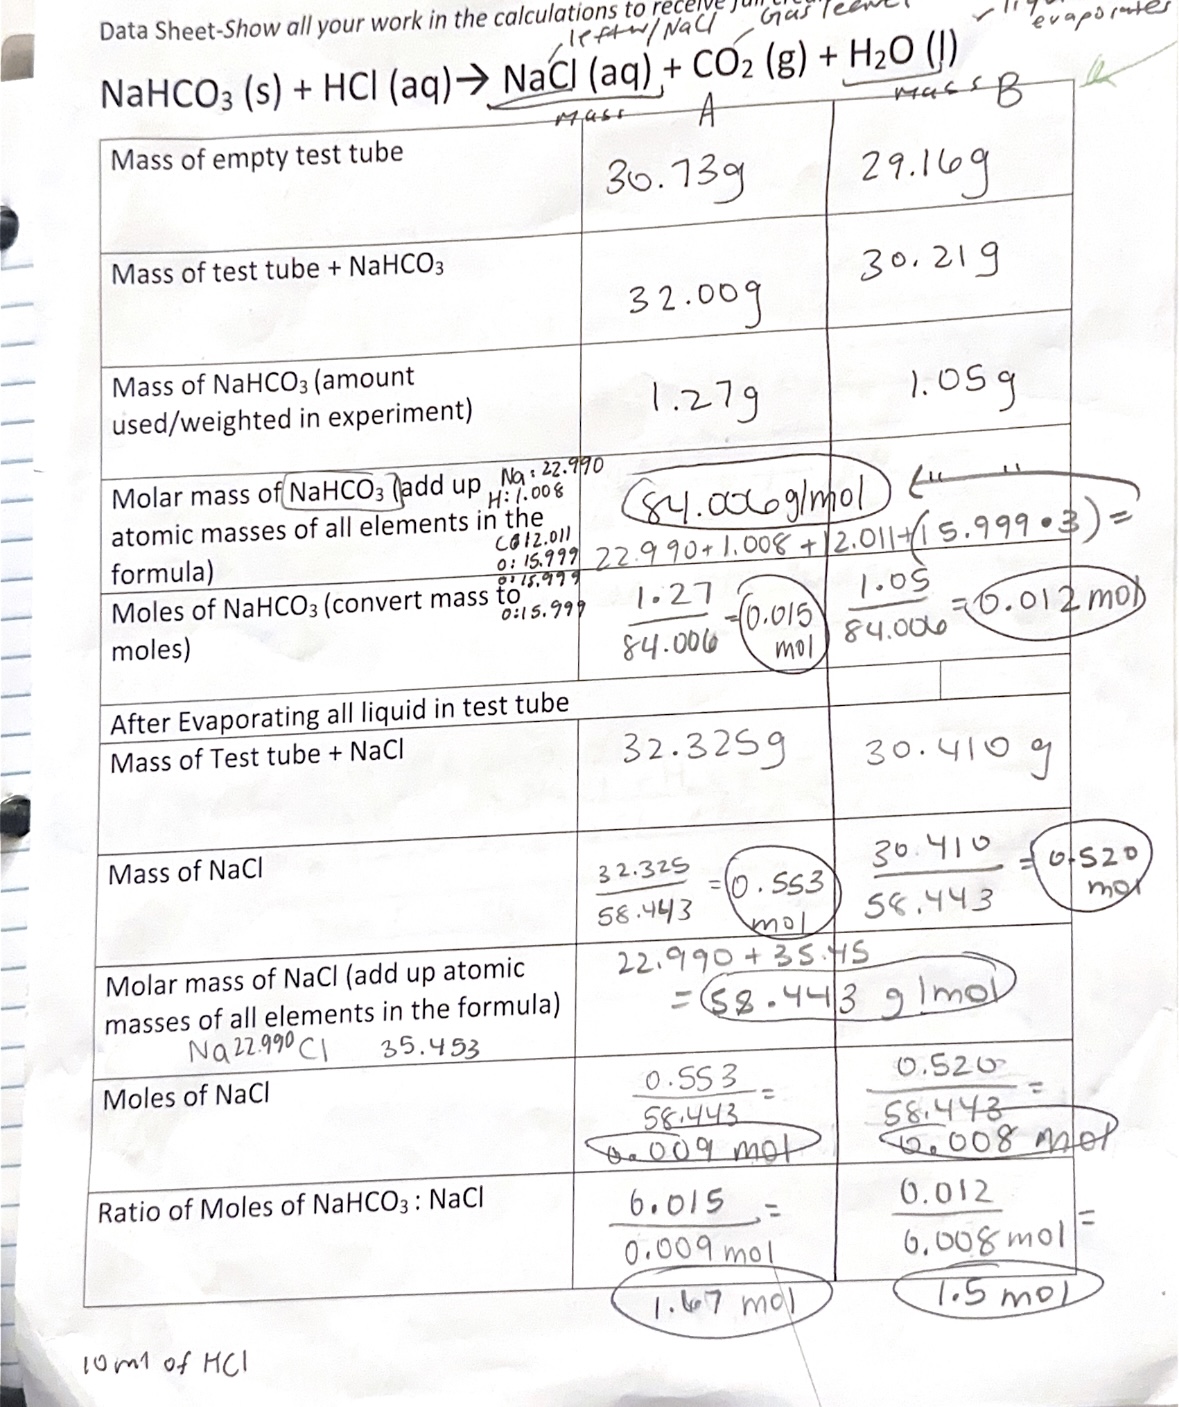 Data Sheet-Show all your work in the calculations to receive
left w/ NaCl
evaporates
NaHCO3 (s) + HCl (aq)→ NaCl (aq) + CO2 (g) + H2O (l)
Mass A
Mass B
Mass of empty test tube 30.73g 29.16g
Mass of test tube + NaHCO3 32.00g 30.21g
Mass of NaHCO3 (amount
used/weighted in experiment) 1.27g 1.05g
Molar mass of NaHCO3 (add up
atomic masses of all elements in the
formula)
Na: 22.990
H: 1.008
C: 12.011
O: 15.999
O: 15.999
O: 15.999
84.006g/mol
22.990 + 1.008 + 12.011 + (15.999 • 3) =
Moles of NaHCO3 (convert mass to
moles)
1.27
84.006
=0.015
mol
1.05
84.006
=0.012 mol
After Evaporating all liquid in test tube
Mass of Test tube + NaCl 32.325g 30.410 g
Mass of NaCl
32.325
58.443
=0.553
mol
30.410
58.443
=0.520
mol
Molar mass of NaCl (add up atomic
masses of all elements in the formula)
Na 22.990 Cl 35.453
22.990 + 35.45
= 58.443 g/mol
Moles of NaCl
0.553 =
58.443
0.009 mol
0.520 =
58.443
0.008 mol
Ratio of Moles of NaHCO3 : NaCl
0.015 =
0.009 mol
1.67 mol
0.012 =
0.008 mol
1.5 mol
10 ml of HCl